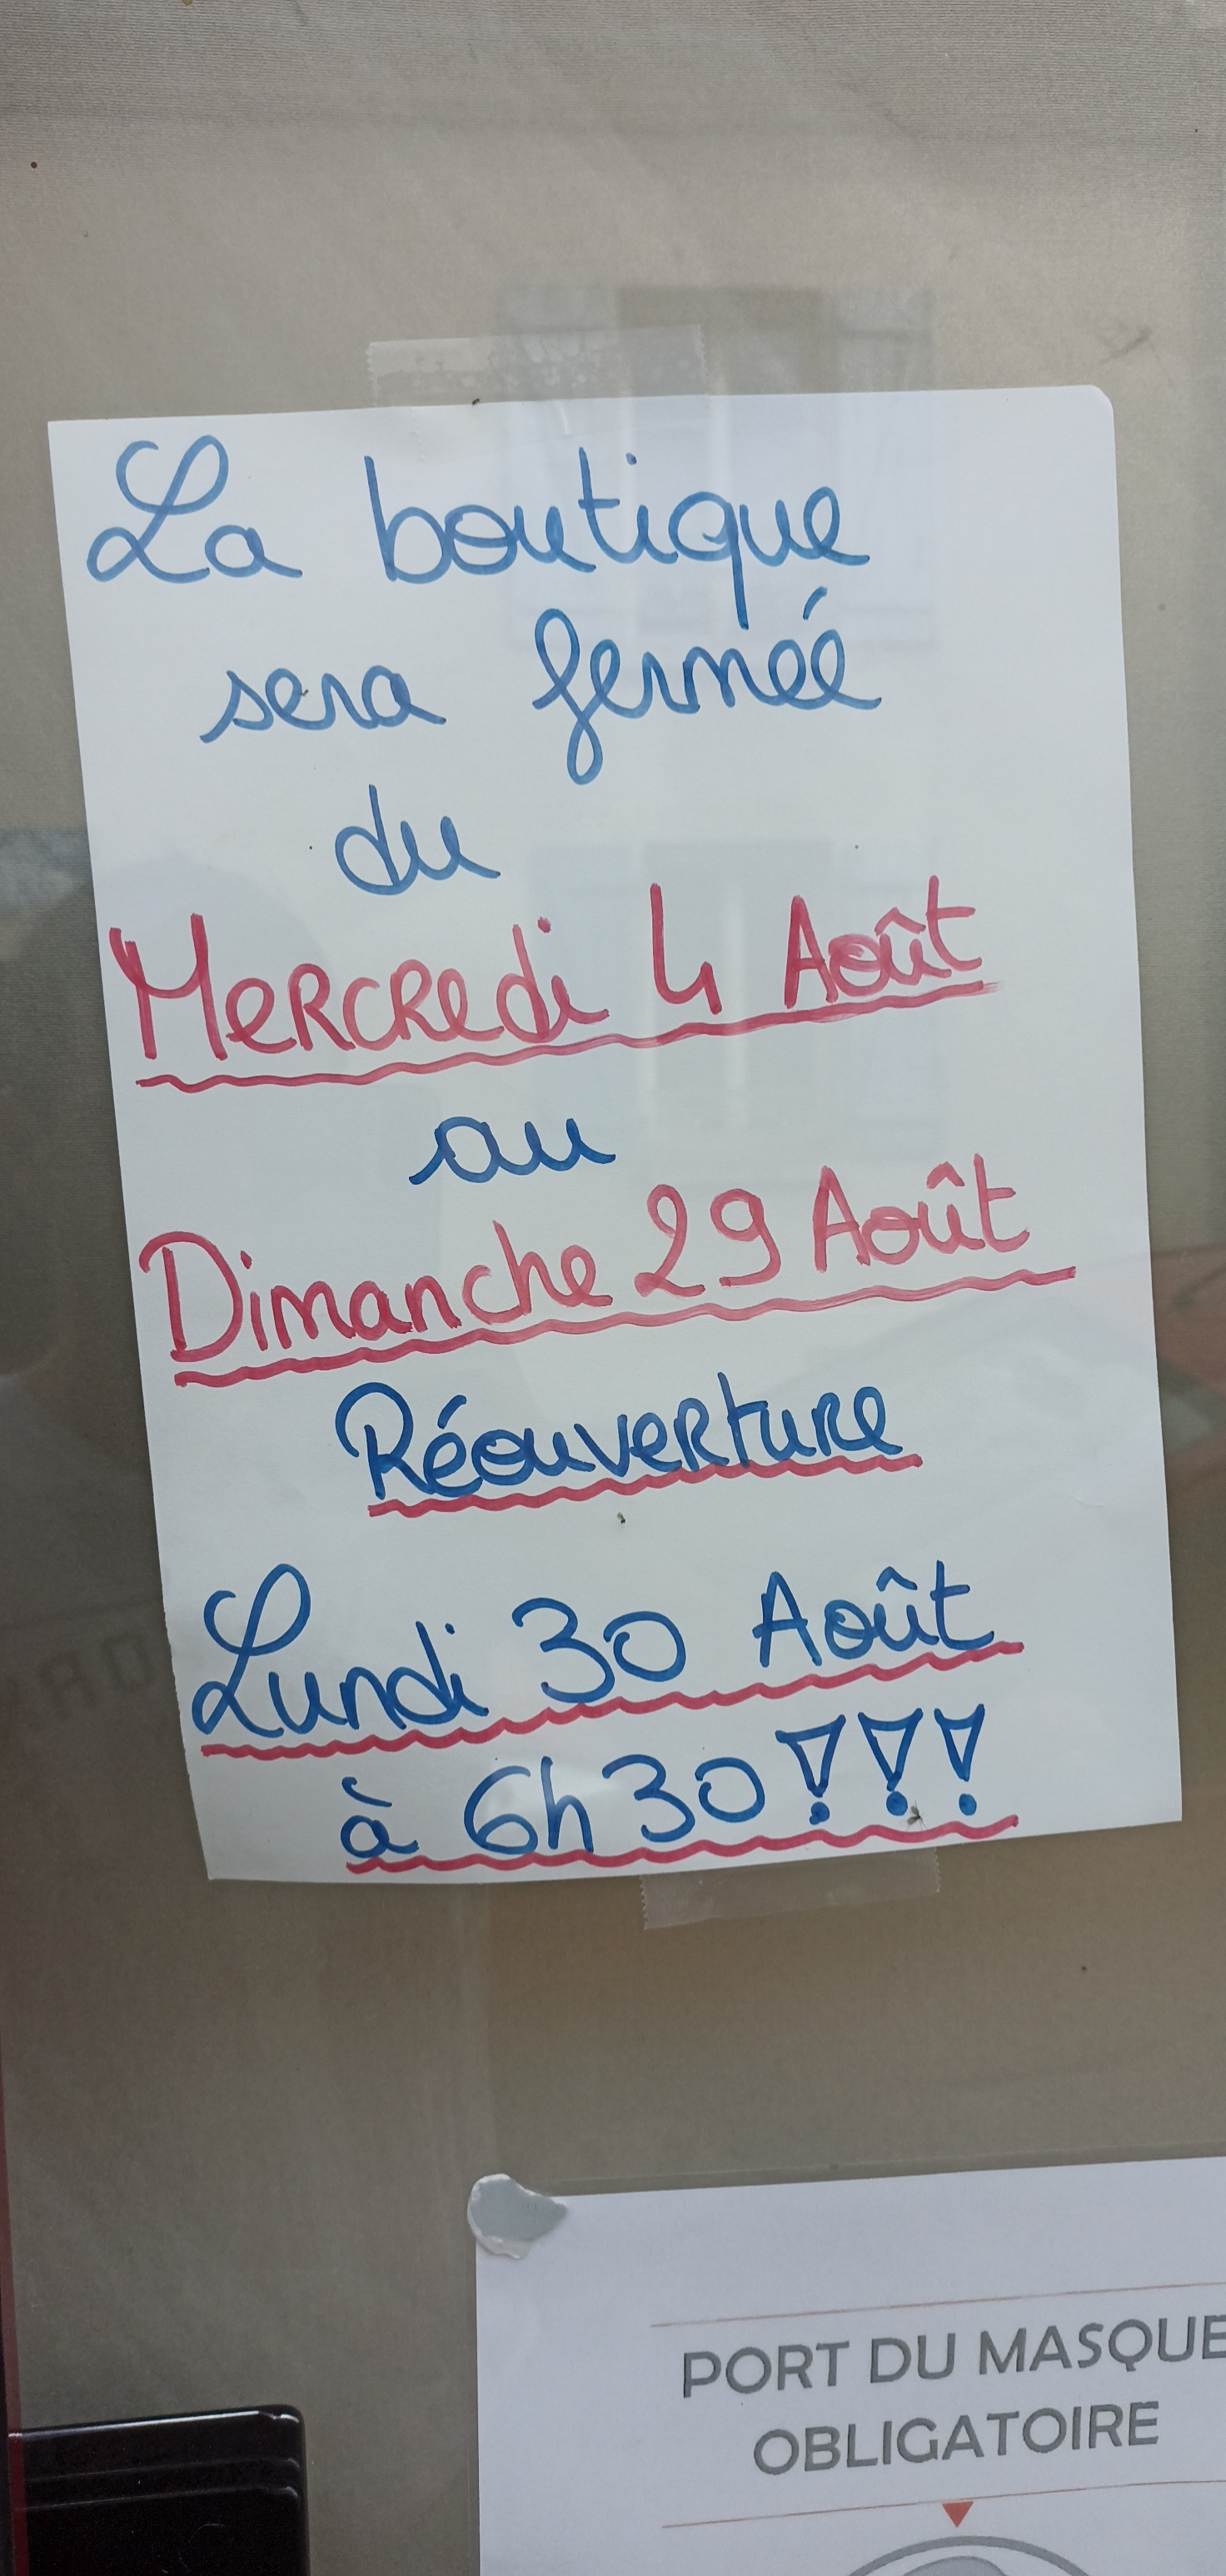 La boutique
sera fermée
du
Mercredi 4 Août
au
Dimanche 29 Août
Réouverture
Lundi 30 Août
à 6h30!!!
PORT DU MASQUE
OBLIGATOIRE